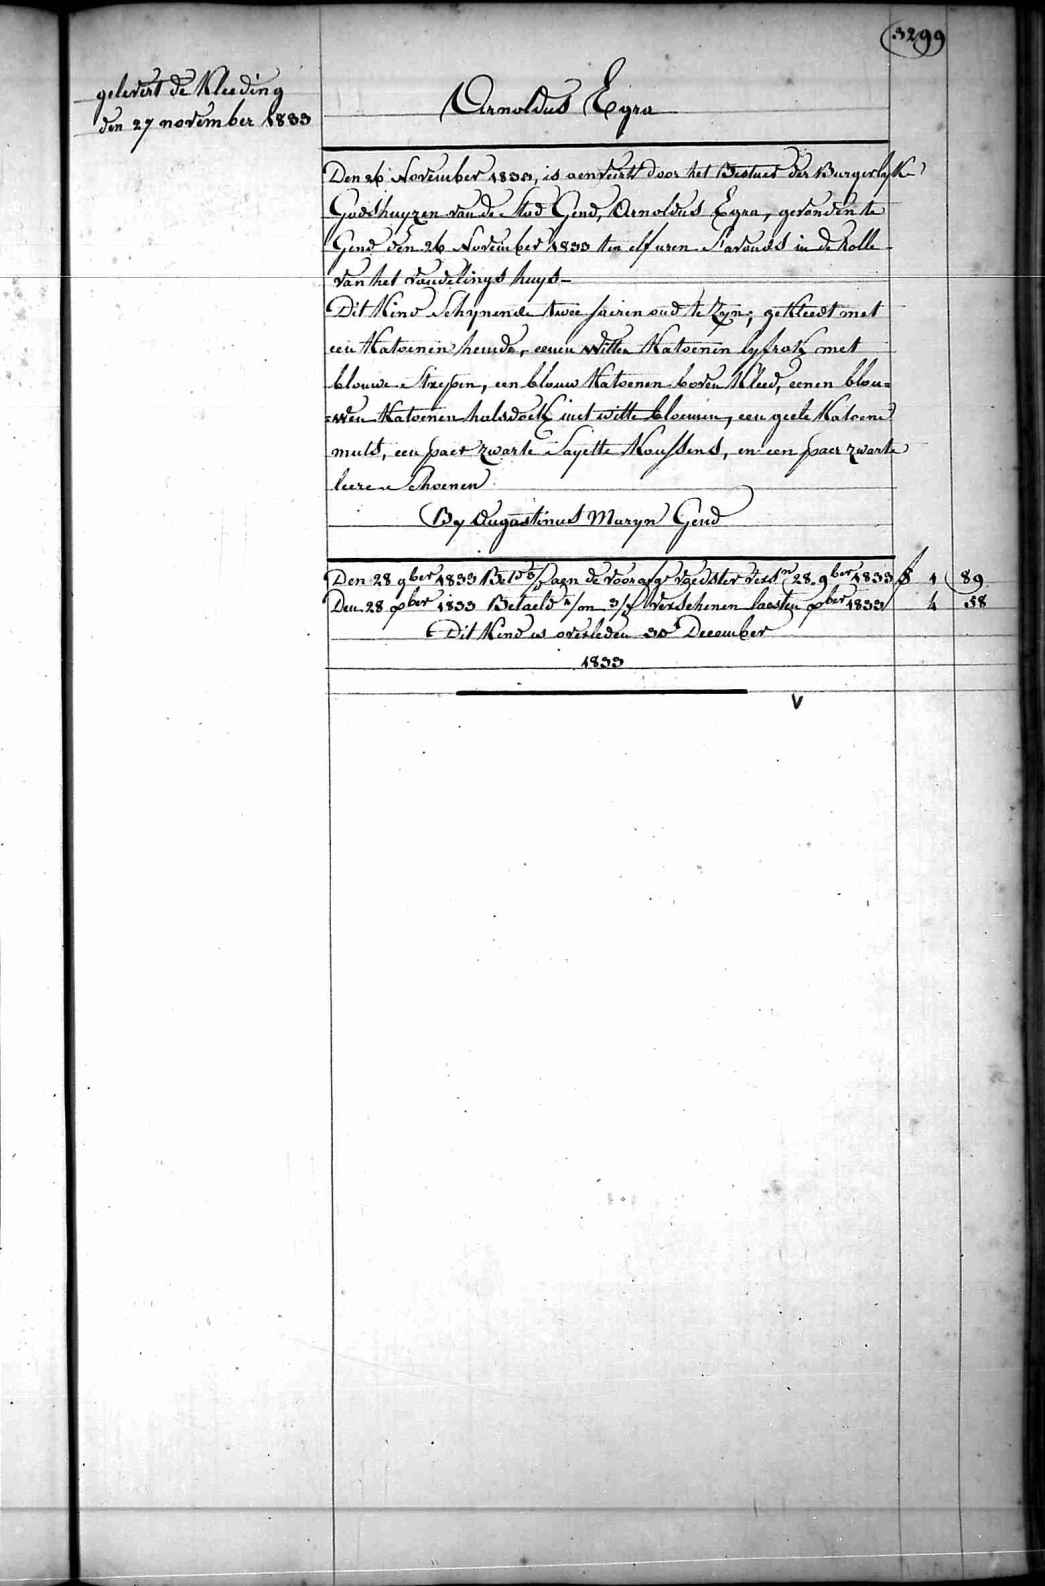 3299
gelevert de Kleeding
den 27 november 1833
Arnoldus Egra
Den 26 November 1833, is aenveird door het Bestuer der Burgerlyke
Godshuyzen van de Stad Gend, Arnoldus Egra, gevonden te
Gend den 26 November 1833 ten elf uren S'avonds in de rolle
van het vondelings huys –
Dit Kind Schynende twee jairen oud te Zyn; gekleedt met
een Katoenen hemde, eenen Witten Katoenen lyfrok met
blouwe Strepen, een blouw Katoenen boven Kleed, eenen blou=
=wen Katoenen halsdoek met witte bloemen, een geele Katoene
muts, een paer zwarte Sayette Koussens, en een paer zwarte
leere Schoenen
By Augustinus Maryn Gend
Den 28 9ber 1833 aen de voedster 28. 9ber 1833 f 1 89
Den 28 xber 1833 Betaeld 1/m 3/j Verschenen laesten xber 1833 4 58
Dit Kind is overleden 30 December
1833
V